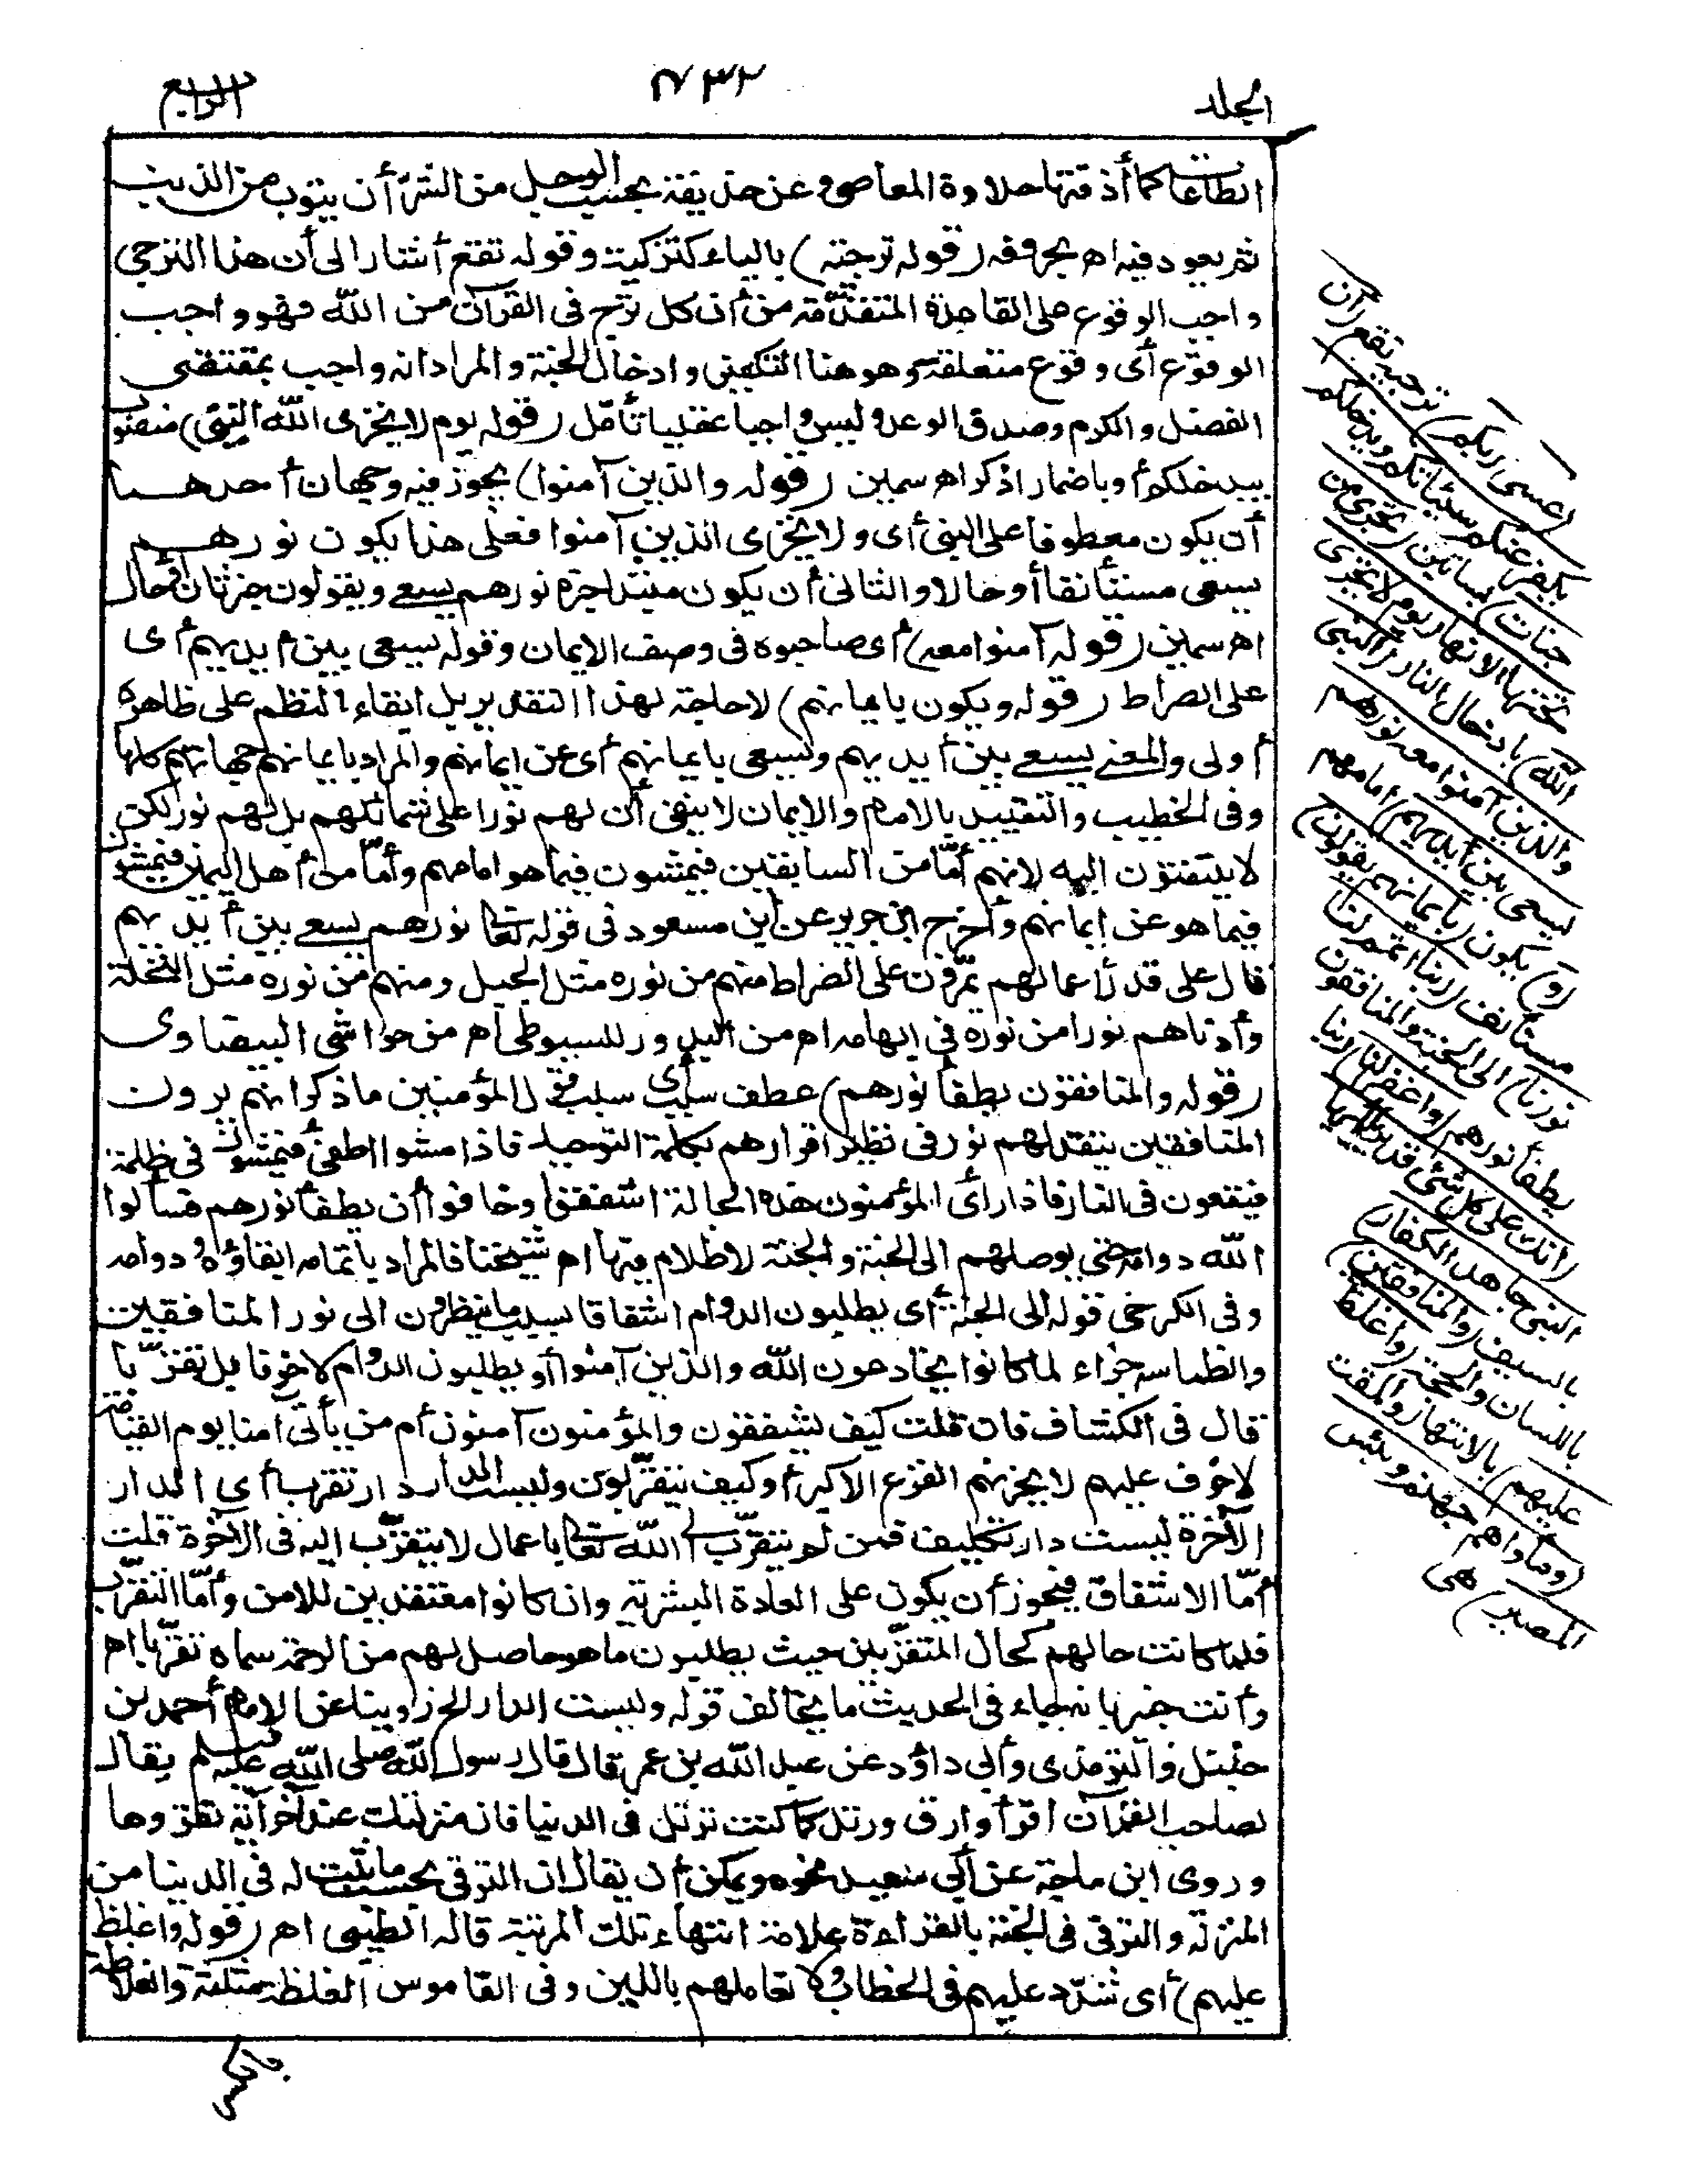 المجلد
٧٣٢
الرابع
الطاعات كما أذقتها حلاوة المعاصى وعن حذيفة بحسب الرجل من الشر أن يتوب من الذنب
ثم يعود فيه اهـ بحروفه (قوله ترجية) بالياء كتزكية وقوله تقع أشار الى أن هذا الترجى
واجب الوقوع على القاعدة المتقدّمة من أن كل ترج فى القرآن من الله فهو واجب
الوقوع أى وقوع متعلقه وهو هنا التكفير وادخال الجنة والمراد انه واجب بمقتضى
الفضل والكرم وصدق الوعد وليس واجبا عقليا تأمّل (قوله يوم لا يخزى الله النبى) منصوب
بيدخلكم أو باضمار اذكر اهـ سمين (قوله والذين آمنوا) يجوز فيه وجهان أحدهما
أن يكون معطوفا على النبى أى ولا يخزى الذين آمنوا فعلى هذا يكون نورهم
يسعى مستأنفا أو حالا والثانى أن يكون مبتدأ خبره نورهم يسعى ويقولون خبر ثان أو حال
اهـ سمين (قوله آمنوا معه) أى صاحبوه فى وصف الايمان وقوله يسعى بين أيديهم أى
على الصراط (قوله ويكون بايمانهم) لا حاجة لهذا التقدير بل ابقاء النظم على ظاهره
أولى والمعنى يسعى بين أيديهم ويسعى بايمانهم أى عن ايمانهم والمراد بايمانهم جهاتهم كلها
وفى الخطيب والتقييد بالامام والايمان لا ينفى أن لهم نورا على شمائلهم بل لهم نور لكن
لا يلتفتون اليه لانهم أمّا من السابقين فيمشون فيما هو امامهم وأمّا من أهل اليمين فيمشون
فيما هو عن ايمانهم وأخرج ابن جرير عن ابن مسعود فى قوله تعالى نورهم يسعى بين أيديهم
قال على قدر أعمالهم يمرّون على الصراط منهم من نوره مثل الجبل ومنهم من نوره مثل النخلة
وأدناهم نورا من نوره فى ابهامه اهـ من البدور للسيوطى اهـ من حواشى البيضاوى
(قوله والمنافقون يطفأ نورهم) عطف سبب أى سبب قول المؤمنين ما ذكر انهم يرون
المنافقين يتقد لهم نور فى نظير اقرارهم بكلمة التوحيد فاذا مشوا طفئ فيمشون فى ظلمة
فيقعون فى النار فاذا رأى المؤمنون هذه الحالة اشفقوا وخافوا أن يطفأ نورهم فسألوا
الله دوامه حتى يوصلهم الى الجنة والجنة لا ظلام فيها اهـ شيخنا فالمراد باتمامه ابقاؤه ودوامه
وفى الكرخى قوله الى الجنة أى يطلبون الدوام اشفاقا بسبب ما ينظرون الى نور المنافقين
وانطماسه جزاء لما كانوا يخادعون الله والذين آمنوا أو يطلبون الدوام لا خوفا بل تقرّبا
قال فى الكشاف فان قلت كيف يشفقون والمؤمنون آمنون أم من يأتى آمنا يوم القيامة
لا خوف عليهم لا يحزنهم الفزع الاكبر أو كيف يتقرّبون وليست الدار دار تقرب أى الدار
الآخرة ليست دار تكليف فمن لم يتقرّب الى الله تعالى باعمال لا يتقرّب اليه فى الآخرة قلت
أمّا الاشفاق فيجوز أن يكون على العادة البشرية وان كانوا معتقدين للامن وأمّا التقرّب
فلما كانت حالهم كحال المتقرّبين حيث يطلبون ما هو حاصل لهم من الرحمة سماه تقرّبا اهـ
وأنت خبير بانه جاء فى الحديث ما يخالف قوله وليست الدار الخ روينا عن الامام أحمد بن
حنبل والترمذى وأبى داؤد عن عبد الله بن عمر قال قال رسول الله صلى الله عليه وسلم يقال
لصاحب القرآن اقرأ وارق ورتل كما كنت ترتل فى الدنيا فان منزلتك عند آخر آية تقرؤها
وروى ابن ماجة عن أبى سعيد نحوه ويمكن أن يقال ان الترقى بحسب ما يثبت له فى الدنيا من
المنزلة والترقى فى الجنة بالقراءة علامة انتهاء تلك المرتبة قاله الطيبى اهـ (قوله واغلظ
عليهم) أى شدّد عليهم فى الخطاب ولا تعاملهم باللين وفى القاموس الغلظة مثلثة والغلاظة
(عسى ربكم) ترجية تقع (أن
يكفر عنكم سيئاتكم ويدخلكم
جنات) بساتين (تجرى من
تحتها الانهار يوم لا يخزى
الله) بادخال النار (النبى
والذين آمنوا معه نورهم
يسعى بين أيديهم) امامهم
(و) يكون (بايمانهم يقولون)
مستأنف (ربنا أتمم لنا
نورنا) الى الجنة والمنافقون
يطفأ نورهم (واغفر لنا) ربنا
(انك على كل شئ قدير يا أيها
النبى جاهد الكفار)
بالسيف (والمنافقين)
باللسان والحجة (واغلظ
عليهم) بالانتهار والمقت
(ومأواهم جهنم وبئس
المصير) هى